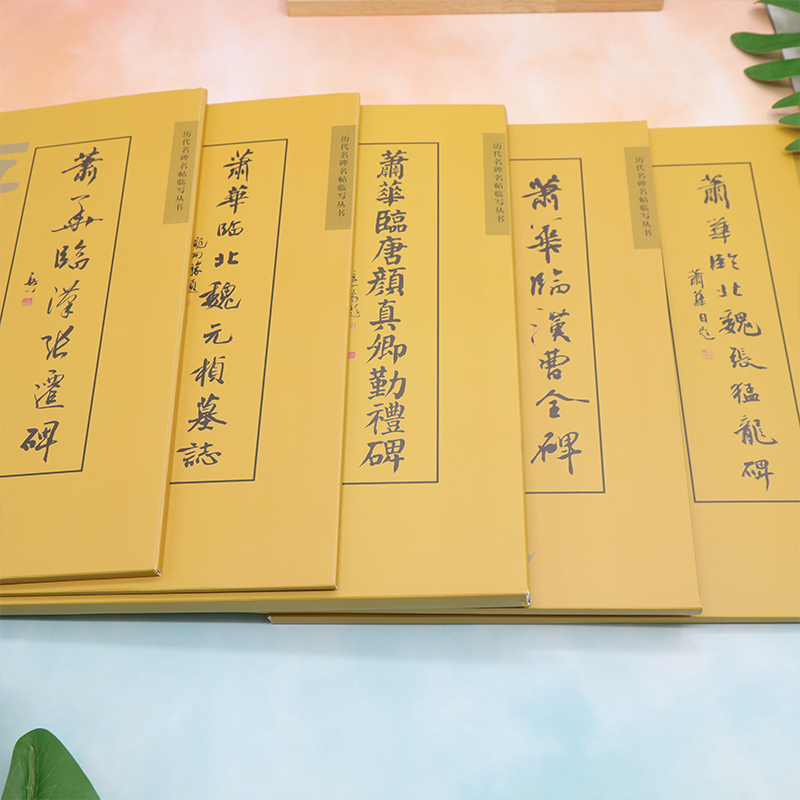 蕭華臨漢張遷碑
历代名碑名帖临写丛书
蕭華臨北魏元楨墓誌
历代名碑名帖临写丛书
蕭華臨唐顏真卿勤禮碑
历代名碑名帖临写丛书
蕭華臨漢曹全碑
历代名碑名帖临写丛书
蕭華臨北魏張猛龍碑
蕭華自題